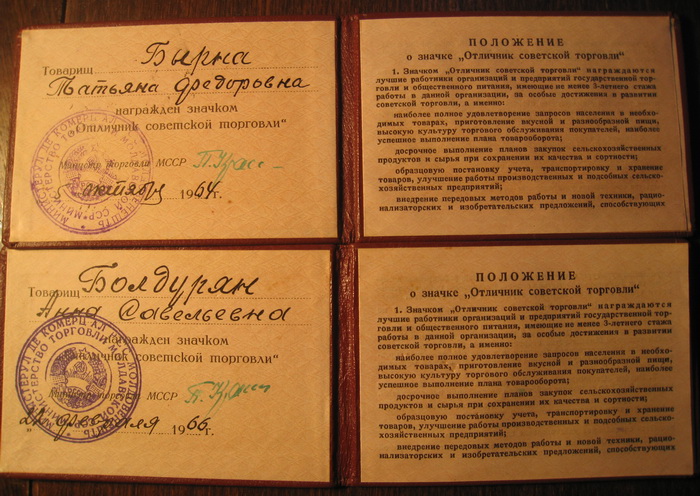 Бырна
Товарищ
Татьяна Федоровна
награжден значком
„Отличник советской торговли“
Министр торговли МССР
5 октября 1964г.
ПОЛОЖЕНИЕ
о значке „Отличник советской торговли“
1. Значком „Отличник советской торговли“ награждаются
лучшие работники организаций и предприятий государственной тор-
говли и общественного питания, имеющие не менее 3-летнего стажа
работы в данной организации, за особые достижения в развитии
советской торговли, а именно:
наиболее полное удовлетворение запросов населения в необхо-
димых товарах, приготовление вкусной и разнообразной пищи,
высокую культуру торгового обслуживания покупателей, наиболее
успешное выполнение плана товарооборота;
досрочное выполнение планов закупок сельскохозяйственных
продуктов и сырья при сохранении их качества и сортности;
образцовую постановку учета, транспортировку и хранение
товаров, улучшение работы производственных и подсобных сельско-
хозяйственных предприятий;
внедрение передовых методов работы и новой техники, рацио-
нализаторских и изобретательских предложений, способствующих
Болдурян
Товарищ
Анна Савельевна
награжден значком
„Отличник советской торговли“
Министр торговли МССР
февраля 1966г.
ПОЛОЖЕНИЕ
о значке „Отличник советской торговли“
1. Значком „Отличник советской торговли“ награждаются
лучшие работники организаций и предприятий государственной тор-
говли и общественного питания, имеющие не менее 3-летнего стажа
работы в данной организации, за особые достижения в развитии
советской торговли, а именно:
наиболее полное удовлетворение запросов населения в необхо-
димых товарах, приготовление вкусной и разнообразной пищи,
высокую культуру торгового обслуживания покупателей, наиболее
успешное выполнение плана товарооборота;
досрочное выполнение планов закупок сельскохозяйственных
продуктов и сырья при сохранении их качества и сортности;
образцовую постановку учета, транспортировку и хранение
товаров, улучшение работы производственных и подсобных сельско-
хозяйственных предприятий;
внедрение передовых методов работы и новой техники, рацио-
нализаторских и изобретательских предложений, способствующих